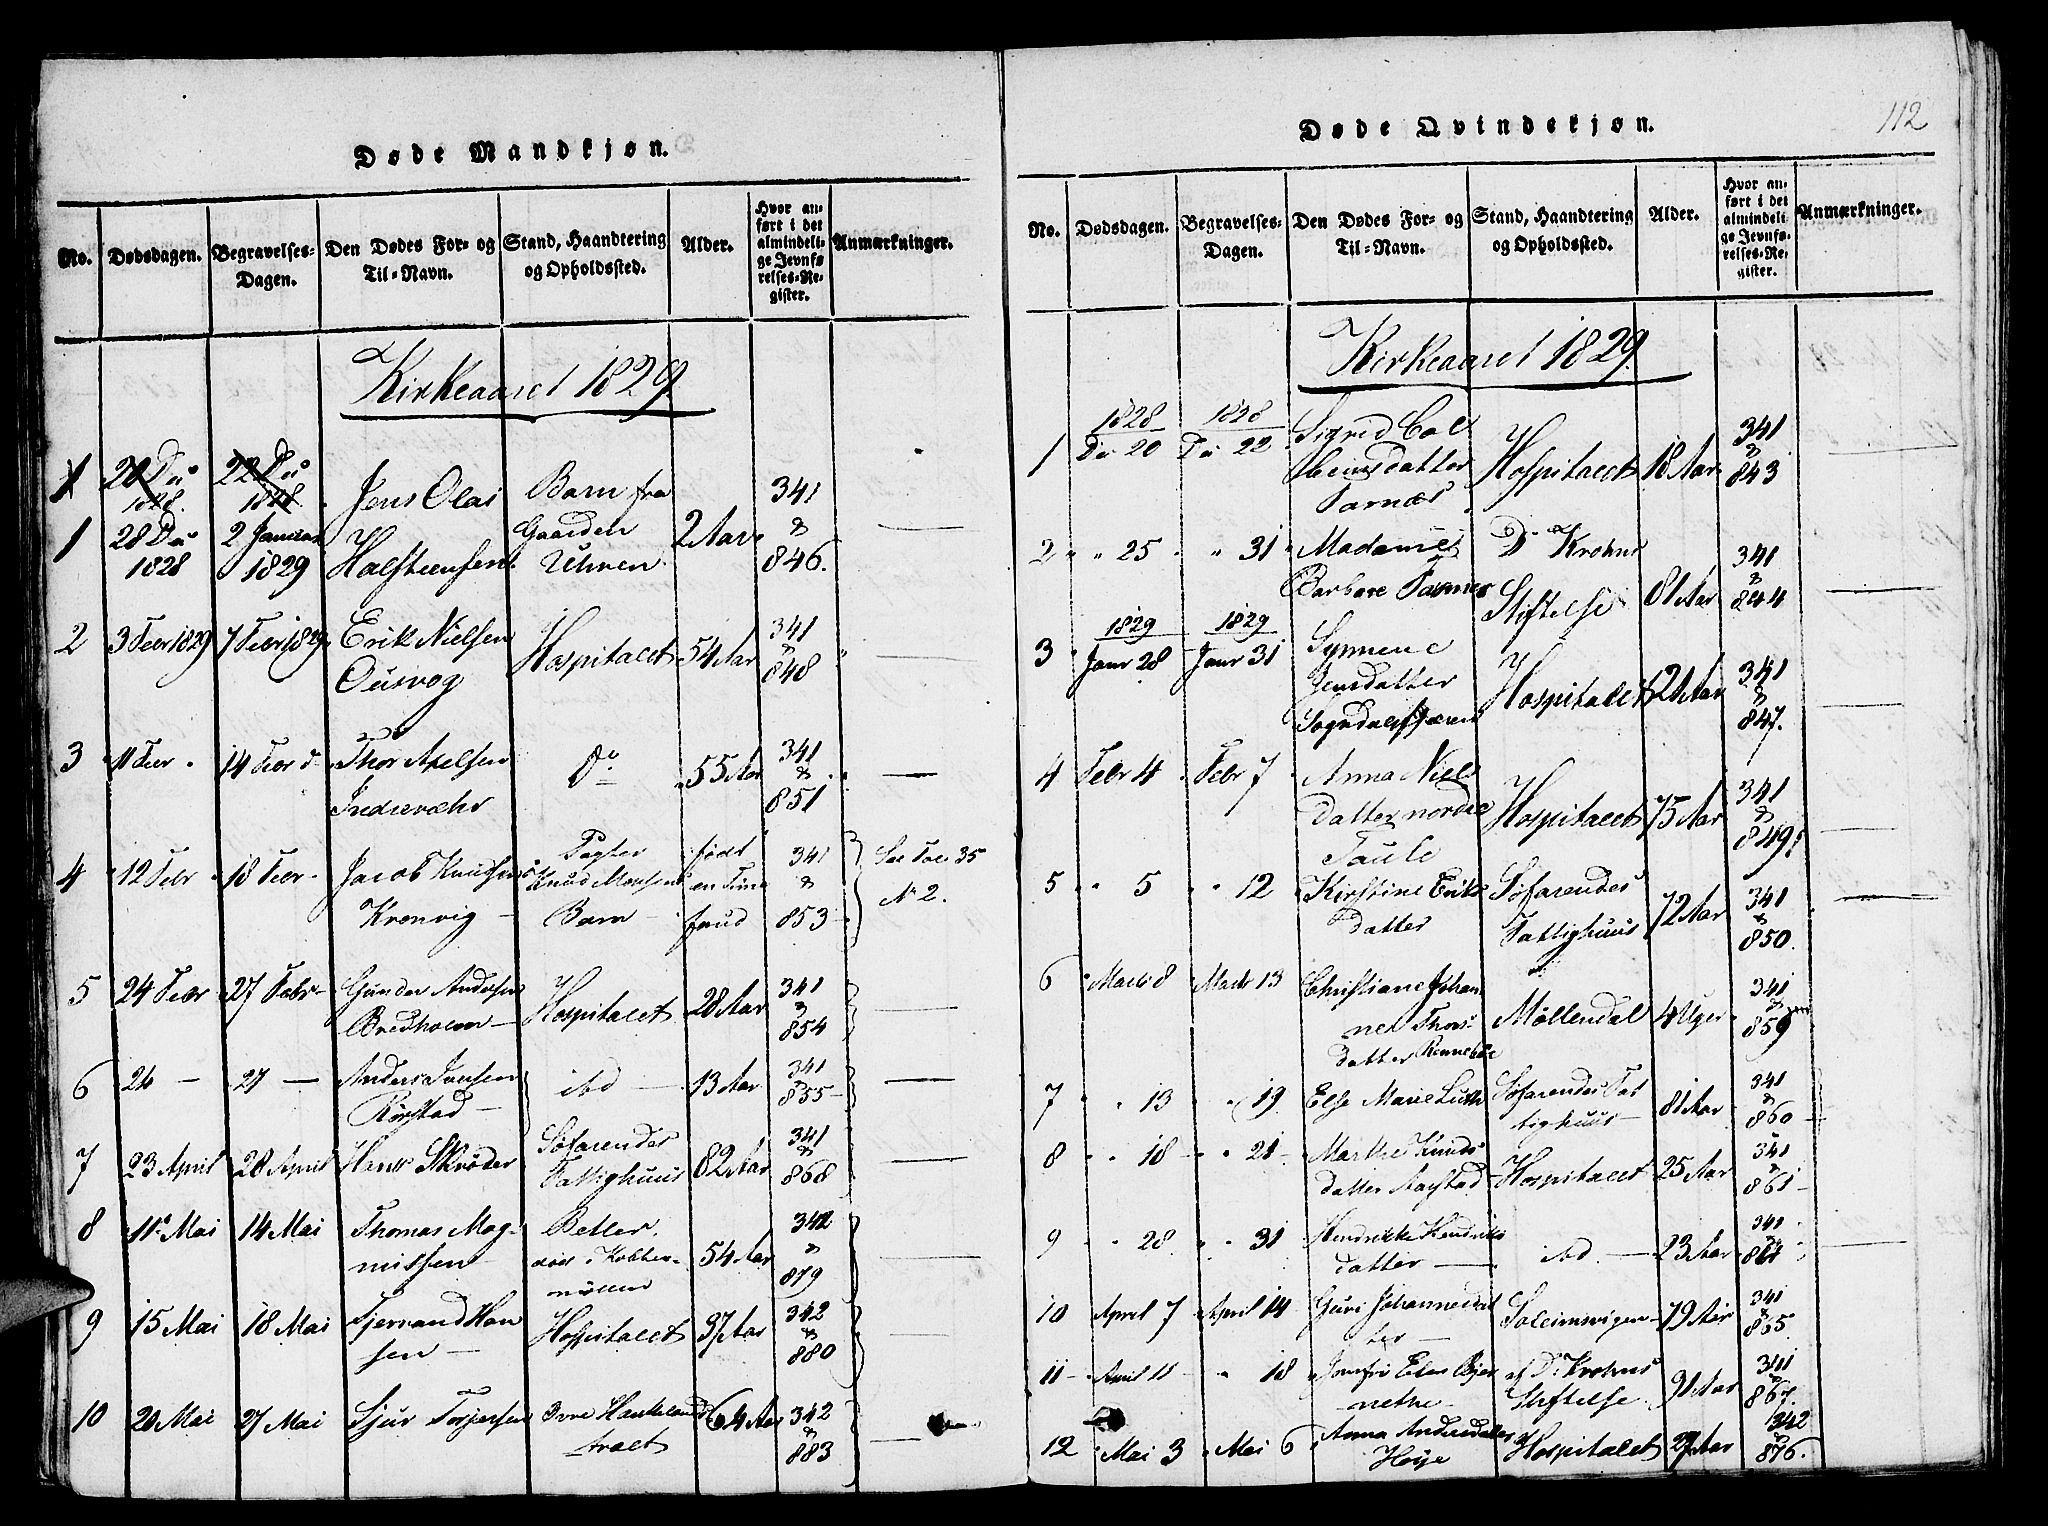 112
Døde Mandkjøn.
No. Dødsdagen. Begravelses-Dagen. Den Dødes For- og Til-Navn. Stand, Haandtering og Opholdssted. Alder. Hvor anført i det almindelige Jevnførelses-Register. Anmærkninger.
Kirkeaaret 1829.
1 28 De 1828 2 Januar 1829 Jens Olai Halsteensen Barn fra Gaarden Uhren 2 Aar 341 & 846.
2 3 Febr 1829 7 Febr 1829 Erik Nielsen Ousvog Hospitalet 54 Aar 341 & 848
3 11 Febr 14 Febr Thor Axelsen Indrevæhr Do 55 Aar 341 & 851
4 12 Febr 18 Febr Jacob Knudsen Kronvig Pagter Knud Monsens Barn født 341 & 853 See Fol 35 No 2.
5 24 Febr 27 Febr Gunder Andersen Bredholm Hospitalet 28 Aar 341 & 854
6 24 27 Anders Iversen Rørstad ibd 13 Aar 341 & 855
7 23 April 28 April Hans Skrøder Søfarendes Fattighuus 82 Aar 341 & 868
8 11 Mai 14 Mai Thomas Magnussen Betler 54 Aar 342 & 879
9 15 Mai 18 Mai Tjerrand Hansen Hospitalet 37 Aar 342 & 880
10 20 Mai 27 Mai Sjur Torjersen 64 Aar 342 & 883
Døde Qvindekjøn.
No. Dødsdagen. Begravelses-Dagen. Den Dødes For- og Til-Navn. Stand, Haandtering og Opholdssted. Alder. Hvor anført i det almindelige Jevnførelses-Register. Anmærkninger.
Kirkeaaret 1829.
1 1828 De 20 1828 De 22 Sigrid Hospitalet 18 Aar 341 & 843
2 " 25 " 31 Madame Barbare Dr Krohns Stiftelse 81 Aar 341 & 844
3 1829 Janr 28 1829 Janr 31 Synneve Jensdatter Hospitalet 341 & 847.
4 Febr 4 Febr 7 Anna Nielsdatter nordre Taule Hospitalet 75 Aar 341 & 849
5 " 5 " 12 Kirstine Eriksdatter Søfarendes Fattighuus 72 Aar 341 & 850.
6 8 13 Christiane Johanne Thorsdatter Møllendal 4 Uger 341 & 859
7 " 13 " 19 Else Marie Søfarendes Fattighuus 81 Aar 341 & 860
8 " 18 " 21 Marthe Knudsdatter Aarstad Hospitalet 25 Aar 341 & 861
9 " 28 " 31 Hendrikke Hendriksdatter ibd. 23 Aar 341 &
10 April 7 April 14 Guri Johannesdatter Soleimsvigen 79 Aar 341 & 865
11 April 11 " 18 Jomfru af Dr Krohns Stiftelse 91 Aar 341 & 867
12 Mai 3 Mai 6 Anna Andersdatter Høije Hospitalet 27 Aar 342 & 876.